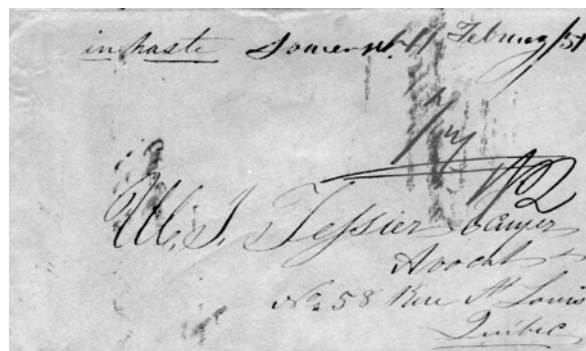 in haste Somerset 11 February /51
U. J. Tessier Lawyer
Avocat
No. 58 Rue St Louis
Québec